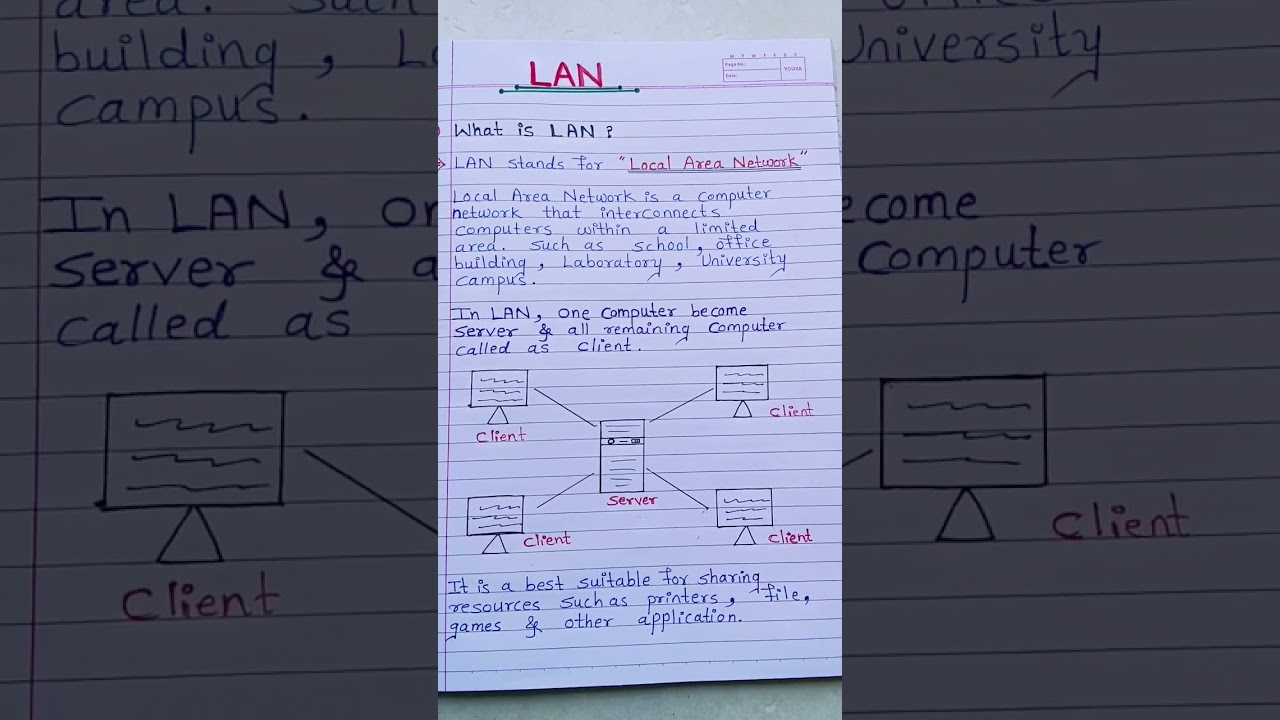 LAN
M T W T F S S
Page No.:
Date:
YOUVA
What is LAN?
LAN stands for "Local Area Network"
Local Area Network is a computer
network that interconnects
computers within a limited
area. such as school, office
building, Laboratory, University
campus.
In LAN, one computer become
server & all remaining computer
called as client.
client
client
server
client
client
It is a best suitable for sharing
resources such as printers, file,
games & other application.
building, L
University
campus.
In LAN, on
ecome
server & a
computer
called as
client
client